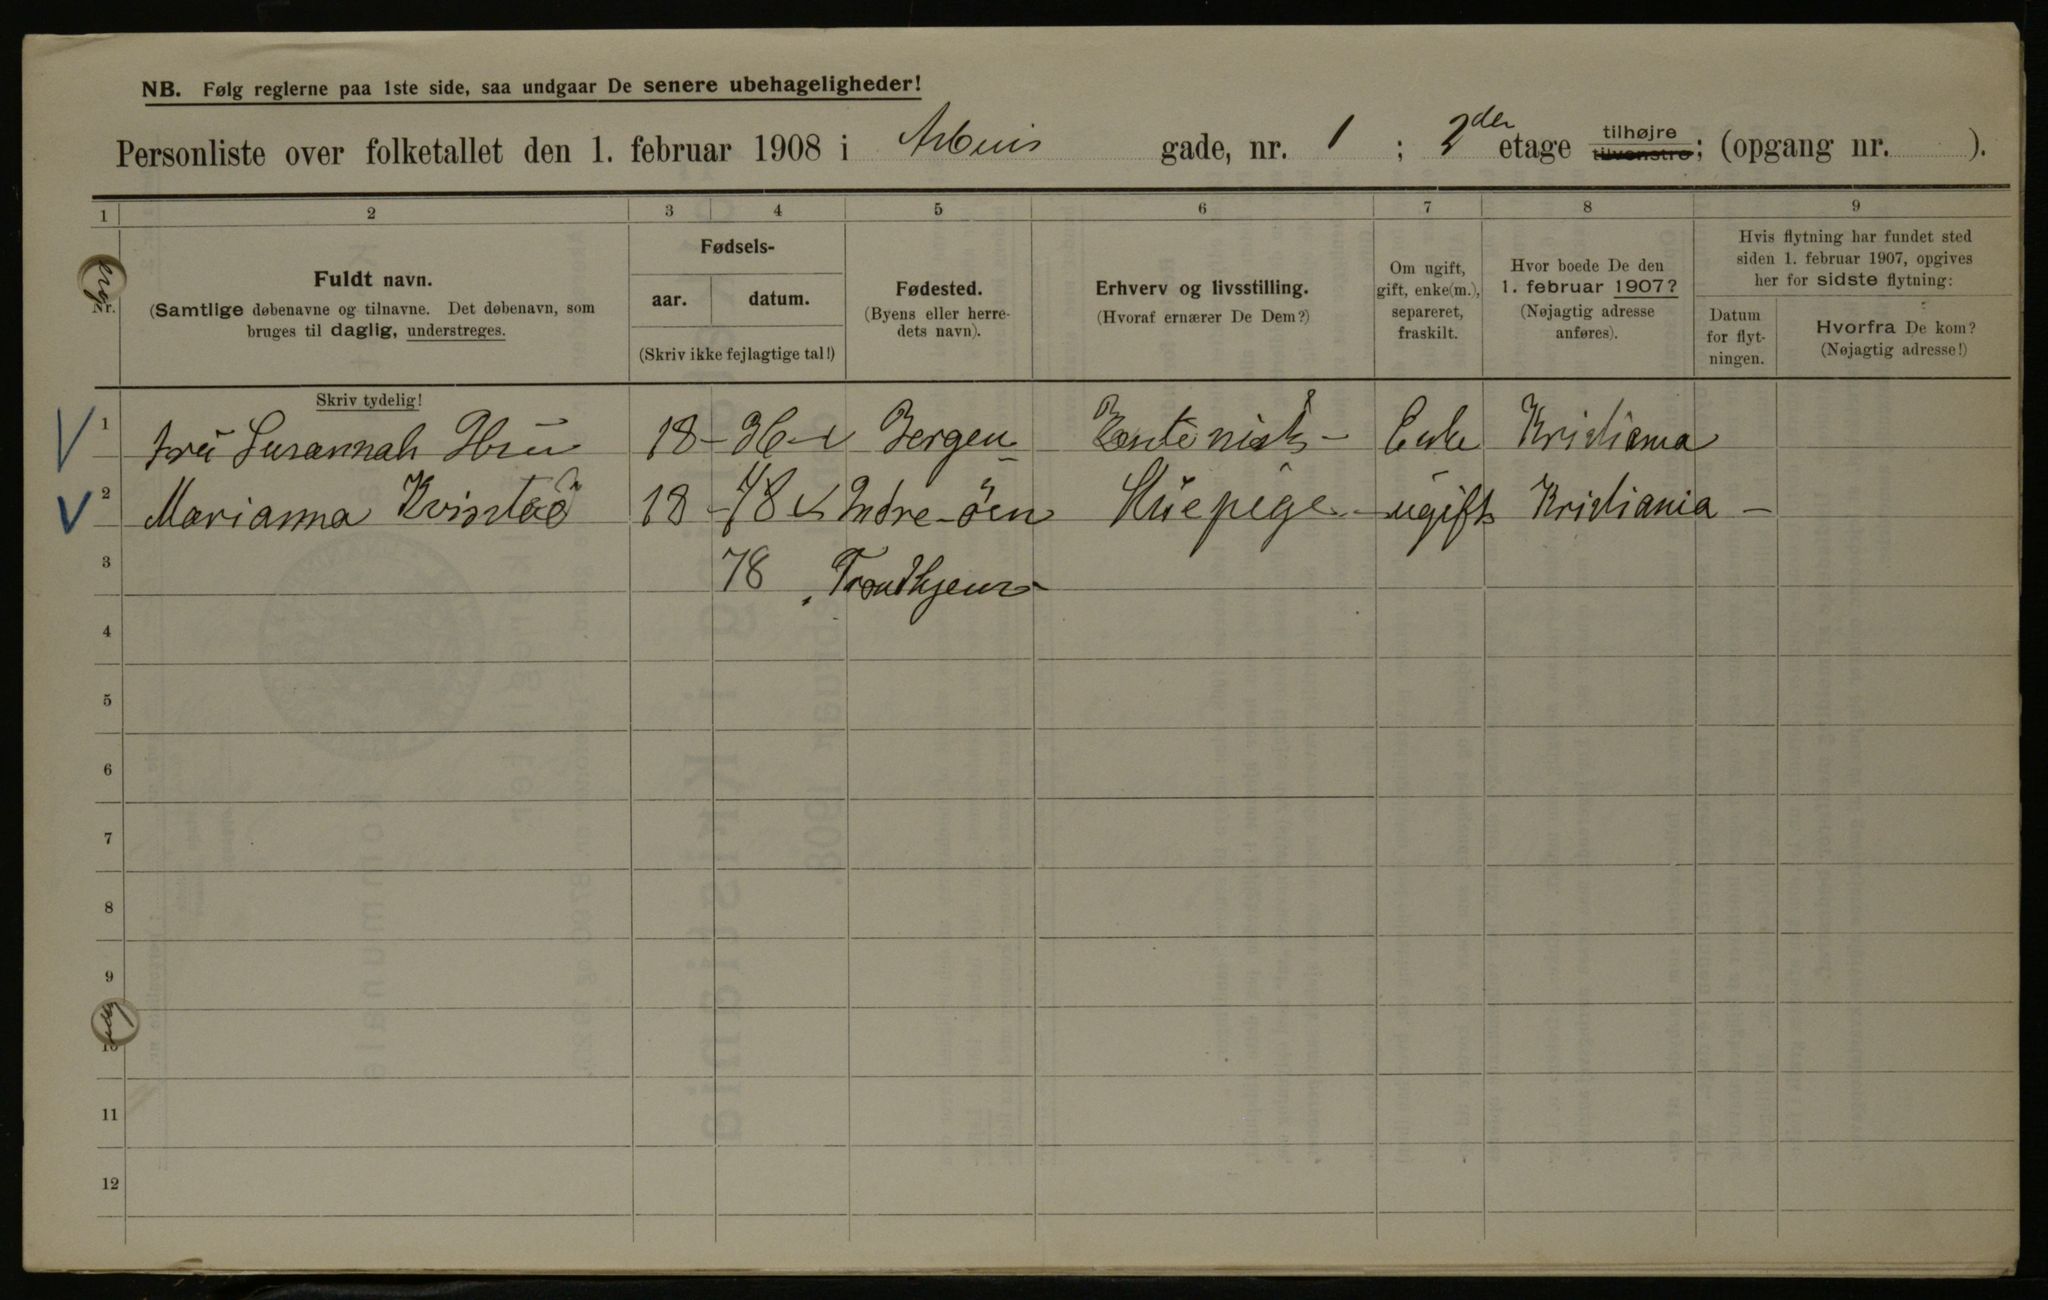 NB. Følg reglerne paa 1ste side, saa undgaar De senere ubehageligheder!
Personliste over folketallet den 1. februar 1908 i Arbins gade, nr. 1 ; 2den etage tilhøjre tilvenstre; (opgang nr. ).
1 2 3 4 5 6 7 8 9
Nr.
Fuldt navn.
(Samtlige døbenavne og tilnavne. Det døbenavn, som
bruges til daglig, understreges.
Fødsels-
aar. datum.
(Skriv ikke fejlagtige tal!)
Fødested.
(Byens eller herre-
dets navn).
Erhverv og livsstilling.
(Hvoraf ernærer De Dem?)
Om ugift,
gift, enke(m.),
separeret,
fraskilt.
Hvor boede De den
1. februar 1907?
(Nøjagtig adresse
anføres).
Hvis flytning har fundet sted
siden 1. februar 1907, opgives
her for sidste flytning:
Datum
for flyt-
ningen.
Hvorfra De kom?
(Nøjagtig adresse!)
Skriv tydelig!
1 Fru Susannah Ibsen 18 - 36 Bergen Rentenist - Enke Kristiania
2 Marianna Kvistad 18 - 78 Indre-öen Stuepige - ugift Kristiania -
3 78 Trondhjems
4
5
6
7
8
9
10
11
12